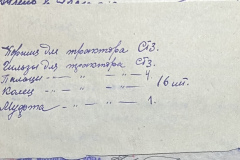 Поршня для трактора СТЗ.
Гильзы для трактора СТЗ.
Пальцы — „ — „ — „ — 4.
Колец — „ — „ — „ — 16 шт.
Муфта — „ — „ — „ — 1.